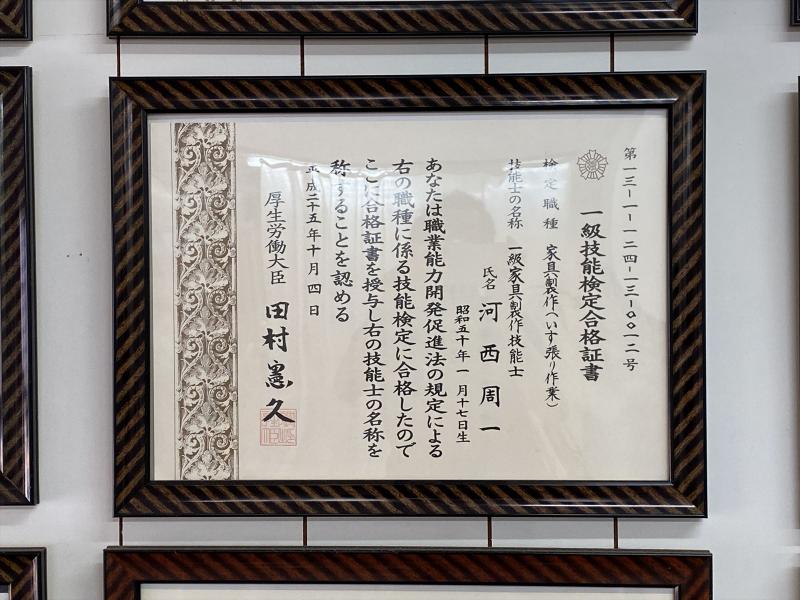 第一三-一-一二四-一三-〇〇一二号
一級技能検定合格証書
検定職種 家具製作(いす張り作業)
技能士の名称 一級家具製作技能士
氏名 河西周一
昭和五十年一月十七日生
あなたは職業能力開発促進法の規定による
右の職種に係る技能検定に合格したので
ここに合格証書を授与し右の技能士の名称を
称することを認める
平成二十五年十月四日
厚生労働大臣 田村憲久